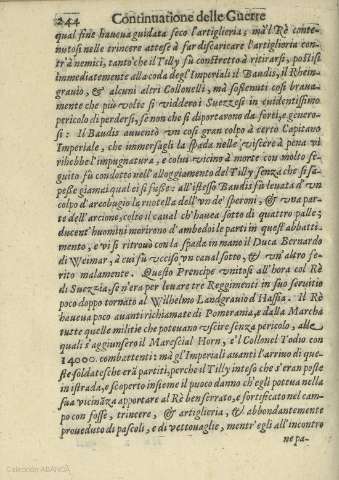 244 Continuatione delle Guerre
qual fine haueua guidata seco l'artiglieria; mà l Rè conte-
nutosi nelle trincere attese à far discaricare l'artiglieria con-
trà nemici, tanto che il Tilly fù constretto à ritirarsi, postisi
immediatemente alla coda degl'Imperiali il Baudis, il Rhein-
grauio, & alcuni altri Collonelli, mà sostenuti così braua-
mente che più volte si viddero i Suezzesi in euidentissimo
pericolo di perdersi, se non che si diportarono da forti, e genero-
si: Il Baudis auuentò vn così gran colpo à certo Capitano
Imperiale, che immersagli la spada nelle viscere à pena vi
rihebbe l'impugnatura, e colui vicino à morte con molto se-
guito fù condotto nell'alloggiamento del Tilly senza che si sa-
pesse giamai qual ei si fusse: all'istesso Baudis fù leuata d'vn
colpo d'arcobugio la ruotella dell'vn de' speroni, & vna par-
te dell'arcione, colto il canal ch'hauea sotto di quattro palle;
ducent'huomini morirono d'ambedoi le parti in quest'abbatti-
mento, e vi si ritrouò con la spada in mano il Duca Bernardo
di Weimar, à cui fù vcciso vn canal sotto, & vn'altro fe-
rito malamente. Questo Prencipe vnitosi all'hora col Rè
di Suezzia, se n'era per leuare tre Reggimenti in suo seruitio
poco doppo tornato al Wilhelmo Landgrauio d'Hassia. Il Rè
haueua poco auanti richiamate di Pomerania, e dalla Marcha
tutte quelle militie che poteuano vscire senza pericolo, alle
quali s'aggiunsero il Marescial Horn, e'l Collonel Todio con
14000. combattenti: mà gl'Imperiali auanti l'arriuo di que-
ste soldatesche erà partiti, perche il Tilly inteso che s'eran poste
in istrada, e scoperto insieme il puoco danno ch'egli potuua nella
sua vicinăza apportare al Rè ben serrato, e fortificato nel cam-
po con fosse, trincere, & artiglieria, & abbondantemente
proueduto di pascoli, e di vettouaglie, mentr'egli all'incontro
ne pa-
Colección ABANCA